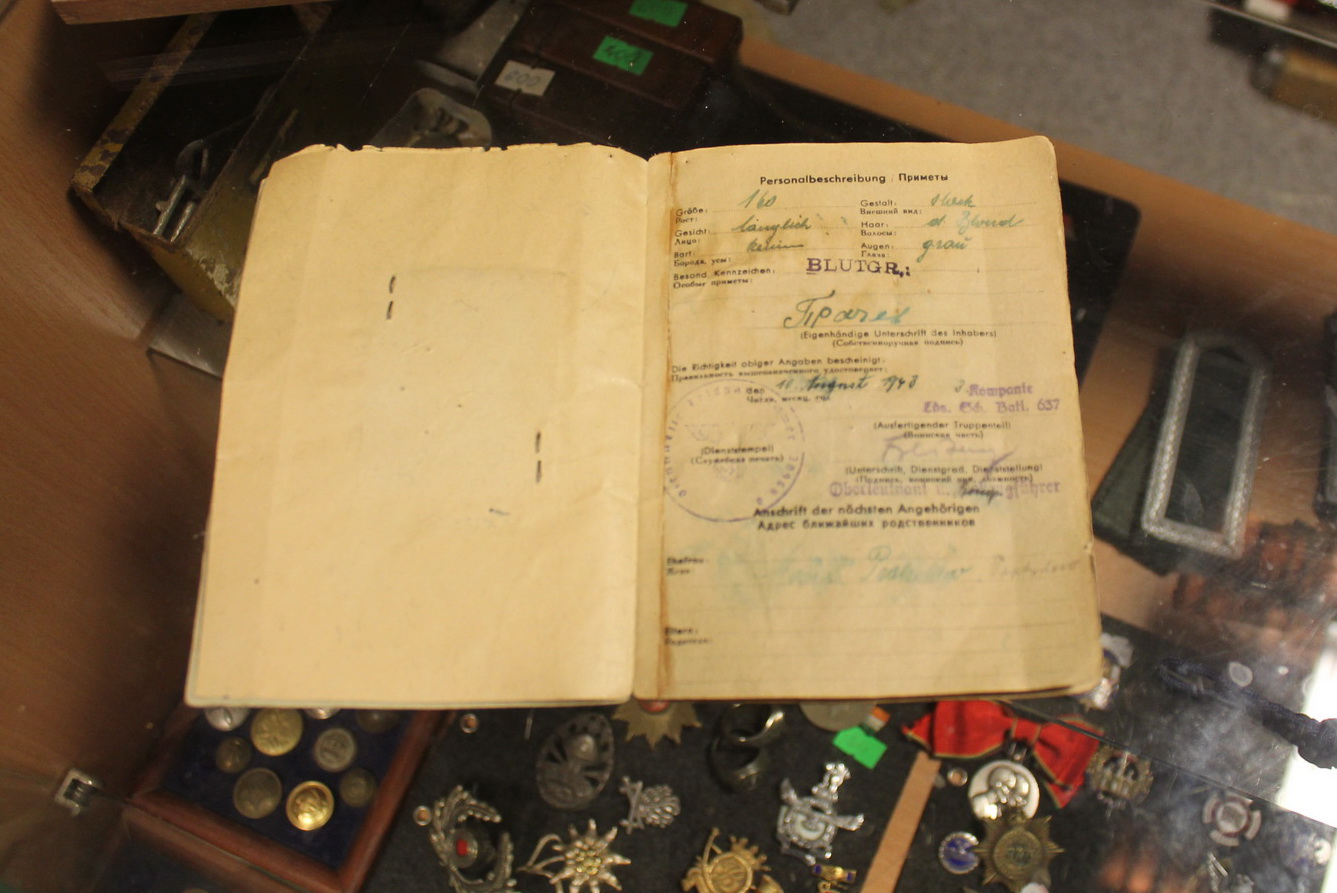 600
400
Personalbeschreibung / Приметы
Größe: 160
Рост:
Gestalt:
Внешний вид:
Gesicht: länglich
Лицо:
Haar: d. Blond
Волосы:
Bart: keinen
Борода, усы:
Augen: grau
Глаза:
Besond. Kennzeichen: BLUTGR.:
Особые приметы:
(Eigenhändige Unterschrift des Inhabers)
(Собственноручная подпись)
Die Richtigkeit obiger Angaben bescheinigt:
Правильность вышеозначенного удостоверяет:
den 10. August 1943
Число, месяц, год
3. Kompanie
Lds. Sch. Batl. 637
(Ausfertigender Truppenteil)
(Воинская часть)
(Dienststempel)
(Служебная печать)
(Unterschrift, Dienstgrad, Dienststellung)
(Подпись, воинский чин, должность)
Oberleutnant u. Komp. Führer
Anschrift der nächsten Angehörigen
Адрес ближайших родственников
Ehefrau:
Жена:
Eltern:
Родители: